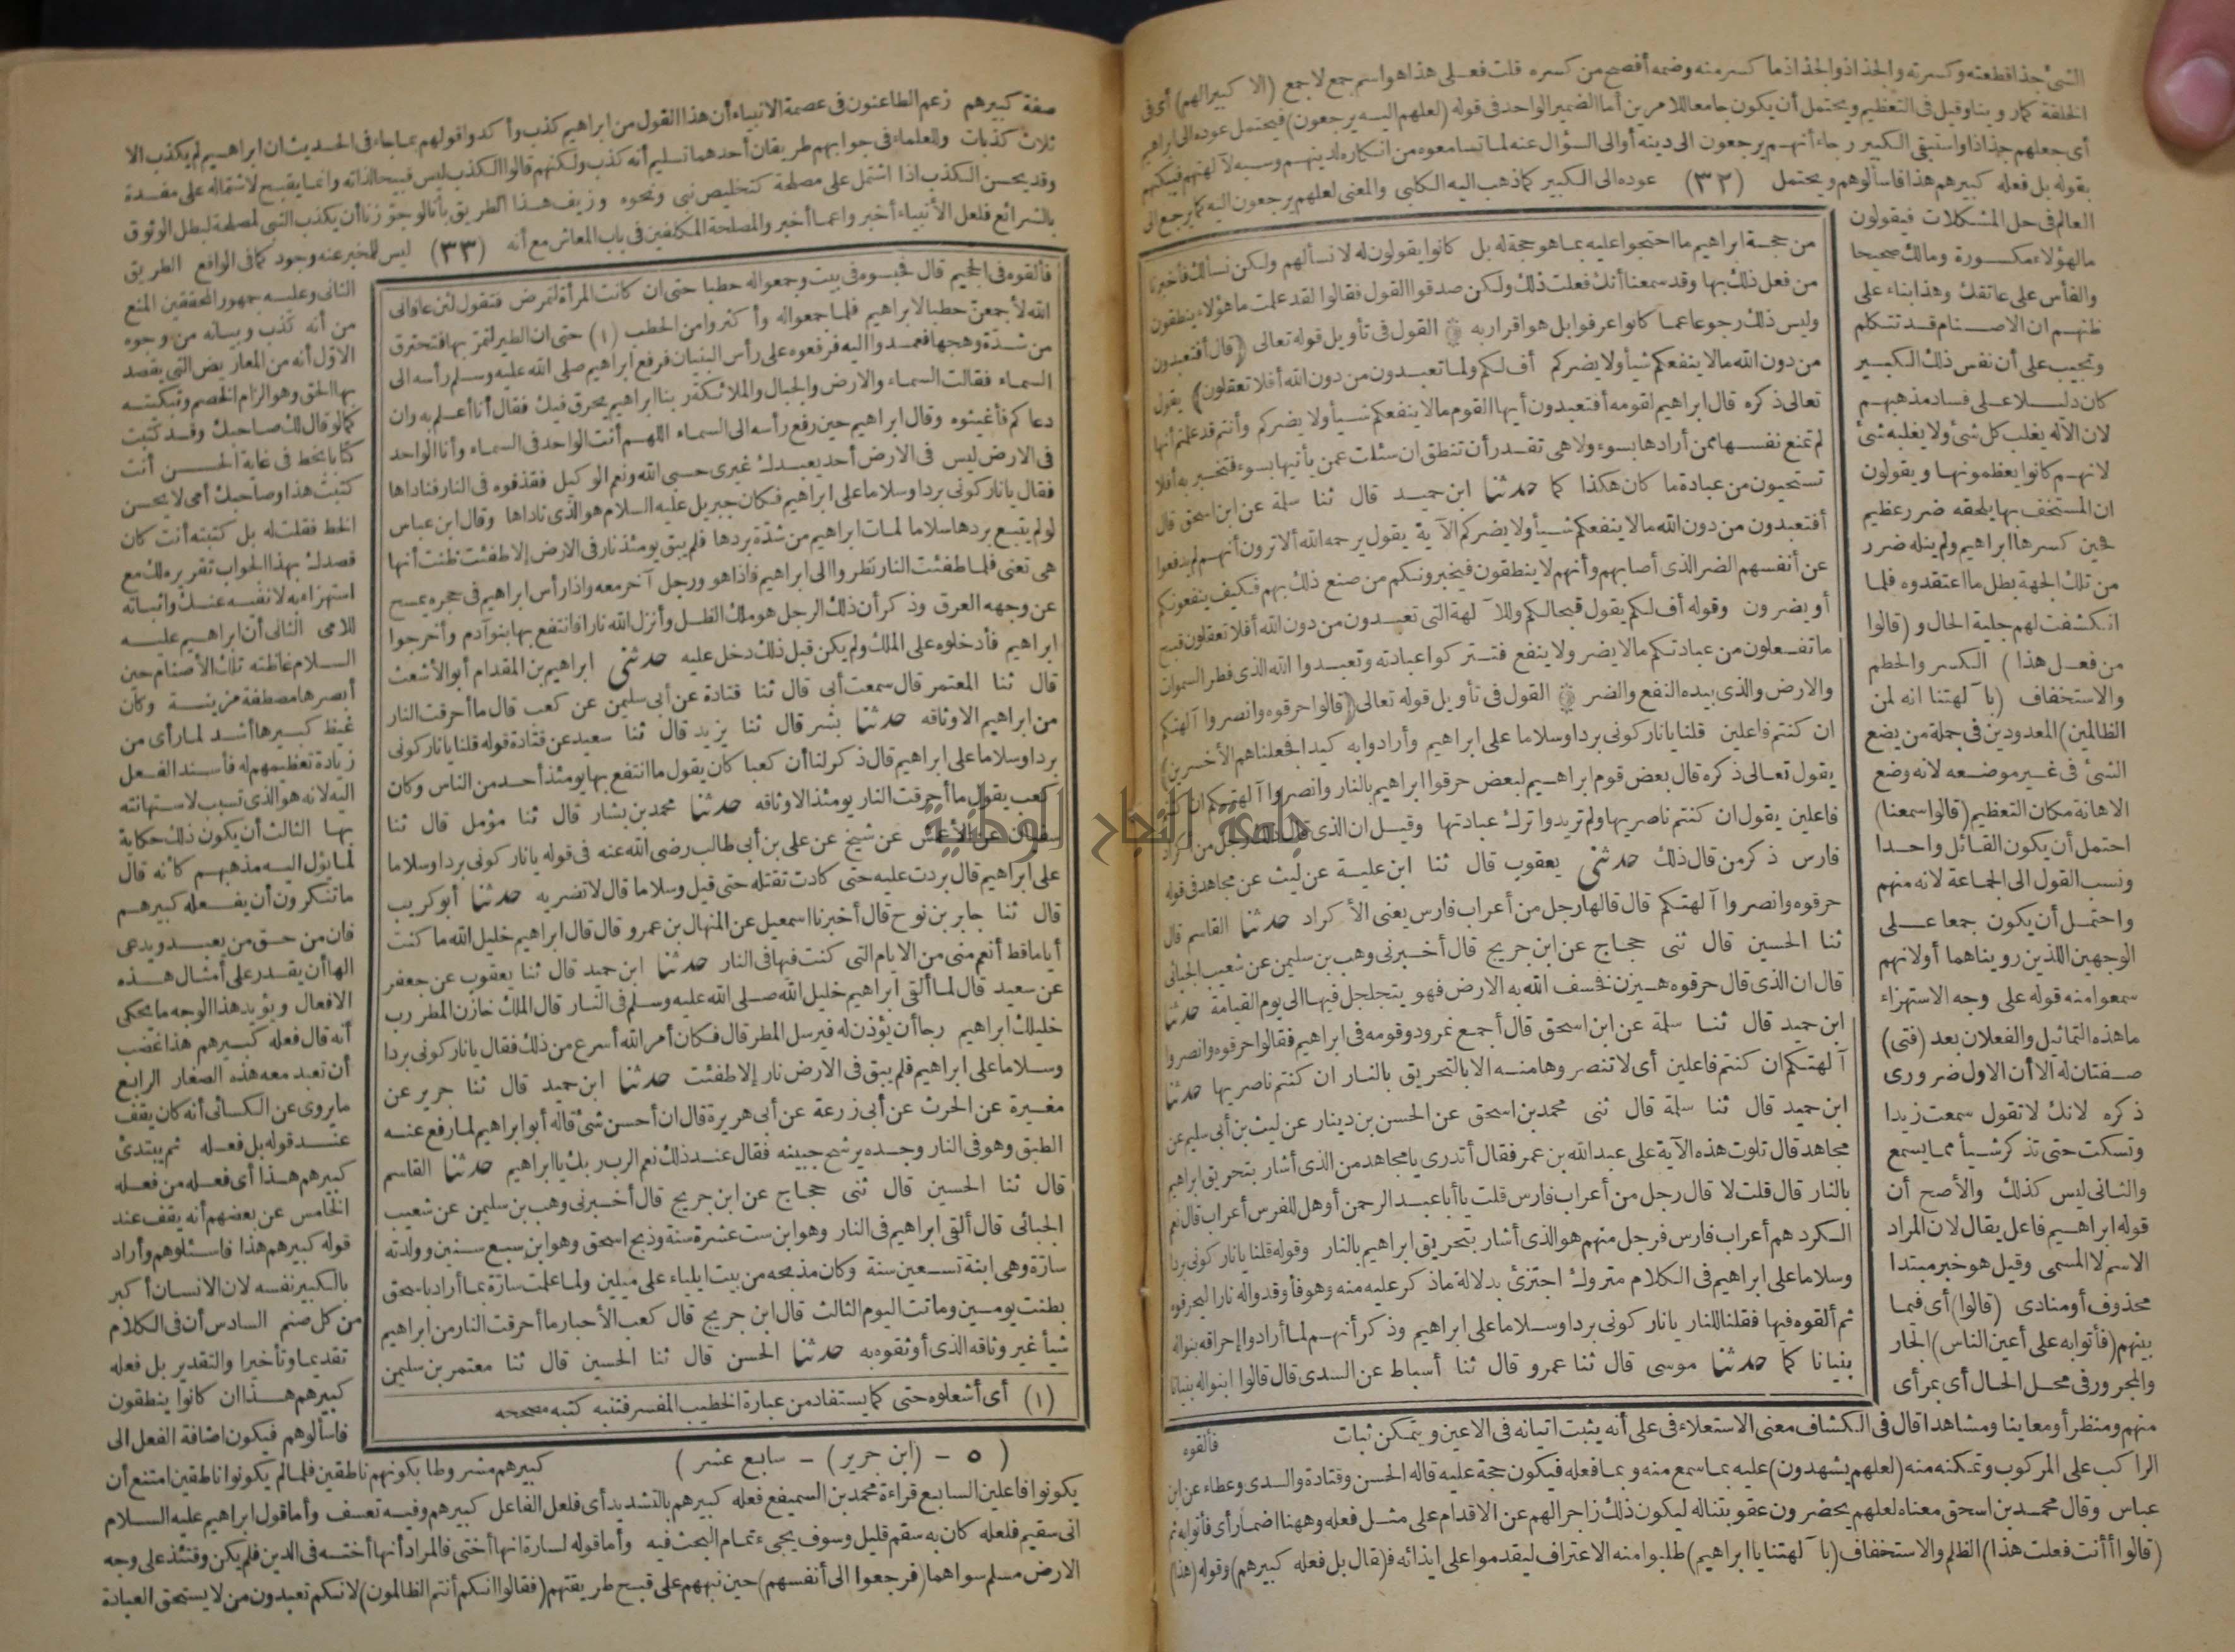 الشئ جذا قطعته وكسرته والجذاذ والجذاذ ما كسر منه وضمه أفصح من كسره قلت فعلى هذا هو اسم جمع لا جمع (الا كبيرا لهم) أى فى
الخلقة كما روينا وقيل فى التعظيم ويحتمل أن يكون جامعا للامرين أما الضمير الواحد فى قوله (لعلهم اليه يرجعون) فيحتمل عوده الى ابراهيم
أى جعلهم جذاذا واستبقى الكبير رجاء أنهم يرجعون الى دينه أو الى السؤال عنه لما تسامعوه من انكاره لدينهم وسبه لآلهتهم فيبكتهم
بقوله بل فعله كبيرهم هذا فاسألوهم ويحتمل (٣٢) عوده الى الكبير كما ذهب اليه الكلبى والمعنى لعلهم يرجعون اليه كما يرجع الى
العالم فى حل المشكلات فيقولون
ما لهؤلاء مكسورة ومالك صحيحا
والفأس على عاتقك وهذا بناء على
ظنهم ان الاصنام قد تتكلم
وتجيب على أن نفس ذلك الكبير
كان دليلا على فساد مذهبهم
لان الاله يغلب كل شئ ولا يغلبه شئ
لانهم كانوا يعظمونها ويقولون
ان المستخف بها يلحقه ضرر عظيم
فحين كسرها ابراهيم ولم ينله ضرر
من تلك الجهة بطل ما اعتقدوه فلما
انكشفت لهم جلية الحال و (قالوا
من فعل هذا) الكسر والحطم
والاستخفاف (بآلهتنا انه لمن
الظالمين) المعدودين فى جملة من يضع
الشئ فى غير موضعه لانه وضع
الاهانة مكان التعظيم (قالوا سمعنا)
احتمل أن يكون القائل واحدا
ونسب القول الى الجماعة لانه منهم
واحتمل أن يكون جمعا على
الوجهين اللذين رويناهما أولا لانهم
سمعوا منه قوله على وجه الاستهزاء
ما هذه التماثيل والفعلان بعد (فتى)
صفتان له الا أن الاول ضرورى
ذكره لانك لا تقول سمعت زيدا
وتسكت حتى تذكر شيأ مما يسمع
والثانى ليس كذلك والأصح أن
قوله ابراهيم فاعل يقال لان المراد
الاسم لا المسمى وقيل هو خبر مبتدا
محذوف أو منادى (قالوا) أى فيما
بينهم (فأتوا به على أعين الناس) الجار
والمجرور فى محل الحال أى بمرأى
من حجة ابراهيم ما احتجوا عليه بما هو حجة له بل كانوا يقولون له لا نسألهم ولكن نسألك فأخبرنا
من فعل ذلك بها وقد سمعنا أنك فعلت ذلك ولكن صدقوا القول فقالوا لقد علمت ما هؤلاء ينطقون
وليس ذلك رجوعا عما كانوا عرفوا بل هو اقرار به ۞ القول فى تأويل قوله تعالى (قال أفتعبدون
من دون الله ما لا ينفعكم شيأ ولا يضركم أف لكم ولما تعبدون من دون الله أفلا تعقلون) يقول
تعالى ذكره قال ابراهيم لقومه أفتعبدون أيها القوم ما لا ينفعكم شيأ ولا يضركم وأنتم قد علمتم أنها
لم تمنع نفسها ممن أرادها بسوء ولا هى تقدر أن تنطق ان سئلت عمن يأتيها بسوء فتخبر به أفلا
تستحيون من عبادة ما كان هكذا كما حدثنا ابن حميد قال ثنا سلمة عن ابن اسحق قال
أفتعبدون من دون الله ما لا ينفعكم شيأ ولا يضركم الآية يقول يرحمه الله ألا ترون أنهم لم يدفعوا
عن أنفسهم الضر الذى أصابهم وأنهم لا ينطقون فيخبرونكم من صنع ذلك بهم فكيف ينفعونكم
أو يضرون وقوله أف لكم يقول قبحا لكم وللآلهة التى تعبدون من دون الله أفلا تعقلون قبح
ما تفعلون من عبادتكم ما لا يضر ولا ينفع فتتركوا عبادته وتعبدوا الله الذى فطر السموات
والارض والذى بيده النفع والضر ۞ القول فى تأويل قوله تعالى (قالوا حرقوه وانصروا آلهتكم
ان كنتم فاعلين قلنا يا نار كونى بردا وسلاما على ابراهيم وأرادوا به كيدا فجعلناهم الأخسرين)
يقول تعالى ذكره قال بعض قوم ابراهيم لبعض حرقوا ابراهيم بالنار وانصروا آلهتكم ان كنتم
فاعلين يقول ان كنتم ناصريها ولم تريدوا ترك عبادتها وقيل ان الذى قال ذلك رجل من أكراد
فارس ذكر من قال ذلك حدثنى يعقوب قال ثنا ابن علية عن ليث عن مجاهد فى قوله
حرقوه وانصروا آلهتكم قال قالها رجل من أعراب فارس يعنى الأكراد حدثنا القاسم قال
ثنا الحسين قال ثنى حجاج عن ابن جريج قال أخبرنى وهب بن سليمن عن شعيب الجبائى
قال ان الذى قال حرقوه هيزن فخسف الله به الارض فهو يتجلجل فيها الى يوم القيامة حدثنا
ابن حميد قال ثنا سلمة عن ابن اسحق قال أجمع نمرود وقومه فى ابراهيم فقالوا حرقوه وانصروا
آلهتكم ان كنتم فاعلين أى لا تنصروها منه الا بالتحريق بالنار ان كنتم ناصريها حدثنا
ابن حميد قال ثنا سلمة قال ثنى محمد بن اسحق عن الحسن بن دينار عن ليث بن أبى سليم عن
مجاهد قال تلوت هذه الآية على عبد الله بن عمر فقال أتدرى يا مجاهد من الذى أشار بتحريق ابراهيم
بالنار قال قلت لا قال رجل من أعراب فارس قلت يا أبا عبد الرحمن أو هل للفرس أعراب قال نعم
الكرد هم أعراب فارس فرجل منهم هو الذى أشار بتحريق ابراهيم بالنار وقوله قلنا يا نار كونى بردا
وسلاما على ابراهيم فى الكلام متروك اجتزئ بدلالة ما ذكر عليه منه وهو فأوقدوا له نارا ليحرقوه
ثم ألقوه فيها فقلنا للنار يا نار كونى بردا وسلاما على ابراهيم وذكر أنهم لما أرادوا إحراقه بنوا له
بنيانا كما حدثنا موسى قال ثنا عمرو قال ثنا أسباط عن السدى قال قالوا ابنوا له بنيانا
منهم ومنظر أو معاينا ومشاهدا قال فى الكشاف معنى الاستعلاء فى على أنه يثبت اتيانه فى الاعين ويتمكن ثبات
فألقوه
الراكب على المركوب وتمكنه منه (لعلهم يشهدون) عليه بما سمع منه وبما فعله فيكون حجة عليه قاله الحسن وقتادة والسدى وعطاء عن ابن
عباس وقال محمد بن اسحق معناه لعلهم يحضرون عقوبتنا له ليكون ذلك زاجرا لهم عن الاقدام على مثل فعله وههنا اضمار أى فأتوا به ثم
(قالوا أأنت فعلت هذا) الظلم والاستخفاف (بآلهتنا يا ابراهيم) طلبوا منه الاعتراف ليقدموا على ايذائه ف(قال بل فعله كبيرهم) وقوله (هذا)
صفة كبيرهم زعم الطاعنون فى عصمة الانبياء أن هذا القول من ابراهيم كذب وأكدوا قولهم بما جاء فى الحديث ان ابراهيم لم يكذب الا
ثلاث كذبات وللعلماء فى جوابهم طريقان أحدهما تسليم أنه كذب ولكنهم قالوا الكذب ليس قبيحا لذاته وانما يقبح لاشتماله على مفسدة
وقد يحسن الكذب اذا اشتمل على مصلحة كتخليص نبى ونحوه وزيف هذا الطريق بأنا لو جوزنا أن يكذب النبى لمصلحة لبطل الوثوق
بالشرائع فلعل الأنبياء أخبروا عما أخبروا لمصلحة المكلفين فى باب المعاش مع أنه (٣٣) ليس للمخبر عنه وجود كما فى الواقع الطريق
الثانى وعليه جمهور المحققين المنع
من أنه كذب وبيانه من وجوه
الاول أنه من المعاريض التى يقصد
بها الحق وهو الزام الخصم وتبكيته
كما لو قال لك صاحبك وقد كتبت
كتابا بخط فى غاية الحسن أنت
كتبت هذا وصاحبك أمى لا يحسن
الخط فقلت له بل كتبته أنت كان
قصدك بهذا الجواب تقريره لك مع
استهزاء به لا نفيه عنك واثباته
للامى الثانى أن ابراهيم عليه
السلام غاظته تلك الأصنام حين
أبصرها مصطفة مزينة وكان
غيظ كبيرها أشد لما رأى من
زيادة تعظيمهم له فأسند الفعل
اليه لانه هو الذى تسبب لاستهانته
بها الثالث أن يكون ذلك حكاية
لما يؤل اليه مذهبهم كانه قال
ما تنكرون أن يفعله كبيرهم
فان من حق من يعبد ويدعى
الها أن يقدر على أمثال هذه
الافعال ويؤيد هذا الوجه ما يحكى
أنه قال فعله كبيرهم هذا غضب
أن تعبد معه هذه الصغار الرابع
ما يروى عن الكسائى أنه كان يقف
عند قوله بل فعله ثم يبتدئ
كبيرهم هذا أى فعله من فعله
الخامس عن بعضهم أنه يقف عند
قوله كبيرهم هذا فاسئلوهم وأراد
بالكبير نفسه لان الانسان أكبر
من كل صنم السادس أن فى الكلام
تقديما وتأخيرا والتقدير بل فعله
كبيرهم هذا ان كانوا ينطقون
فاسألوهم فيكون اضافة الفعل الى
فألقوه فى الجحيم قال فحبسوه فى بيت وجمعوا له حطبا حتى ان كانت المرأة لتمرض فتقول لئن عافانى
الله لأجمعن حطبا لابراهيم فلما جمعوا له وأكثروا من الحطب (١) حتى ان الطير لتمر بها فتحترق
من شدة وهجها فعمدوا اليه فرفعوه على رأس البنيان فرفع ابراهيم صلى الله عليه وسلم رأسه الى
السماء فقالت السماء والارض والجبال والملائكة ربنا ابراهيم يحرق فيك فقال أنا أعلم به وان
دعاكم فأغيثوه وقال ابراهيم حين رفع رأسه الى السماء اللهم أنت الواحد فى السماء وأنا الواحد
فى الارض ليس فى الارض أحد يعبدك غيرى حسبى الله ونعم الوكيل فقذفوه فى النار فناداها
فقال يا نار كونى بردا وسلاما على ابراهيم فكان جبريل عليه السلام هو الذى ناداها وقال ابن عباس
لو لم يتبع بردها سلاما لمات ابراهيم من شدة بردها فلم يبق يومئذ نار فى الارض إلا طفئت ظنت أنها
هى تعنى فلما طفئت النار نظروا الى ابراهيم فاذا هو ورجل آخر معه واذا رأس ابراهيم فى حجره يمسح
عن وجهه العرق وذكر أن ذلك الرجل هو ملك الظل وأنزل الله نارا فانتفع بها بنو آدم وأخرجوا
ابراهيم فأدخلوه على الملك ولم يكن قبل ذلك دخل عليه حدثنى ابراهيم بن المقدام أبو الأشعث
قال ثنا المعتمر قال سمعت أبى قال ثنا قتادة عن أبى سليمن عن كعب قال ما أحرقت النار
من ابراهيم الا وثاقه حدثنا بشر قال ثنا يزيد قال ثنا سعيد عن قتادة قوله قلنا يا نار كونى
بردا وسلاما على ابراهيم قال ذكر لنا أن كعبا كان يقول ما انتفع بها يومئذ أحد من الناس وكان
كعب يقول ما أحرقت النار يومئذ الا وثاقه حدثنا محمد بن بشار قال ثنا مؤمل قال ثنا
سفيان عن الأعمش عن شيخ عن على بن أبى طالب رضى الله عنه فى قوله يا نار كونى بردا وسلاما
على ابراهيم قال بردت عليه حتى كادت تقتله حتى قيل وسلاما قال لا تضريه حدثنا أبو كريب
قال ثنا جابر بن نوح قال أخبرنا اسمعيل عن المنهال بن عمرو قال قال ابراهيم خليل الله ما كنت
أياما قط أنعم منى من الايام التى كنت فيها فى النار حدثنا ابن حميد قال ثنا يعقوب عن جعفر
عن سعيد قال لما ألقى ابراهيم خليل الله صلى الله عليه وسلم فى النار قال الملك خازن المطر رب
خليلك ابراهيم رجا أن يؤذن له فيرسل المطر قال فكان أمر الله أسرع من ذلك فقال يا نار كونى بردا
وسلاما على ابراهيم فلم يبق فى الارض نار إلا طفئت حدثنا ابن حميد قال ثنا جرير عن
مغيرة عن الحرث عن أبى زرعة عن أبى هريرة قال ان أحسن شئ قاله أبو ابراهيم لما رفع عنه
الطبق وهو فى النار وجده يرشح جبينه فقال عند ذلك نعم الرب ربك يا ابراهيم حدثنا القاسم
قال ثنا الحسين قال ثنى حجاج عن ابن جريج قال أخبرنى وهب بن سليمن عن شعيب
الجبائى قال ألقى ابراهيم فى النار وهو ابن ست عشرة سنة وذبح اسحق وهو ابن سبع سنين وولدته
سارة وهى ابنة تسعين سنة وكان مذبحه من بيت ايلياء على ميلين ولما علمت سارة بما أراد باسحق
بطنت يومين وماتت اليوم الثالث قال ابن جريج قال كعب الأحبار ما أحرقت النار من ابراهيم
شيأ غير وثاقه الذى أوثقوه به حدثنا الحسن قال ثنا الحسين قال ثنا معتمر بن سليمن
(١) أى أشعلوه حتى كما يستفاد من عبارة الخطيب المفسر فتنبه كتبه مصححه
(٥ – (ابن جرير) – سابع عشر)
كبيرهم مشروطا بكونهم ناطقين فلما لم يكونوا ناطقين امتنع أن
يكونوا فاعلين السابع قراءة محمد بن السميفع فعله كبيرهم بالتشديد أى فلعل الفاعل كبيرهم وفيه تعسف وأما قول ابراهيم عليه السلام
انى سقيم فلعله كان به سقم قليل وسوف يجىء تمام البحث فيه وأما قوله لسارة انها أختى فالمراد أنها أخته فى الدين فلم يكن وقتئذ على وجه
الارض مسلم سواهما (فرجعوا الى أنفسهم) حين نبههم على قبح طريقتهم (فقالوا انكم أنتم الظالمون) لانكم تعبدون من لا يستحق العبادة
جامعة النجاح الوطنية